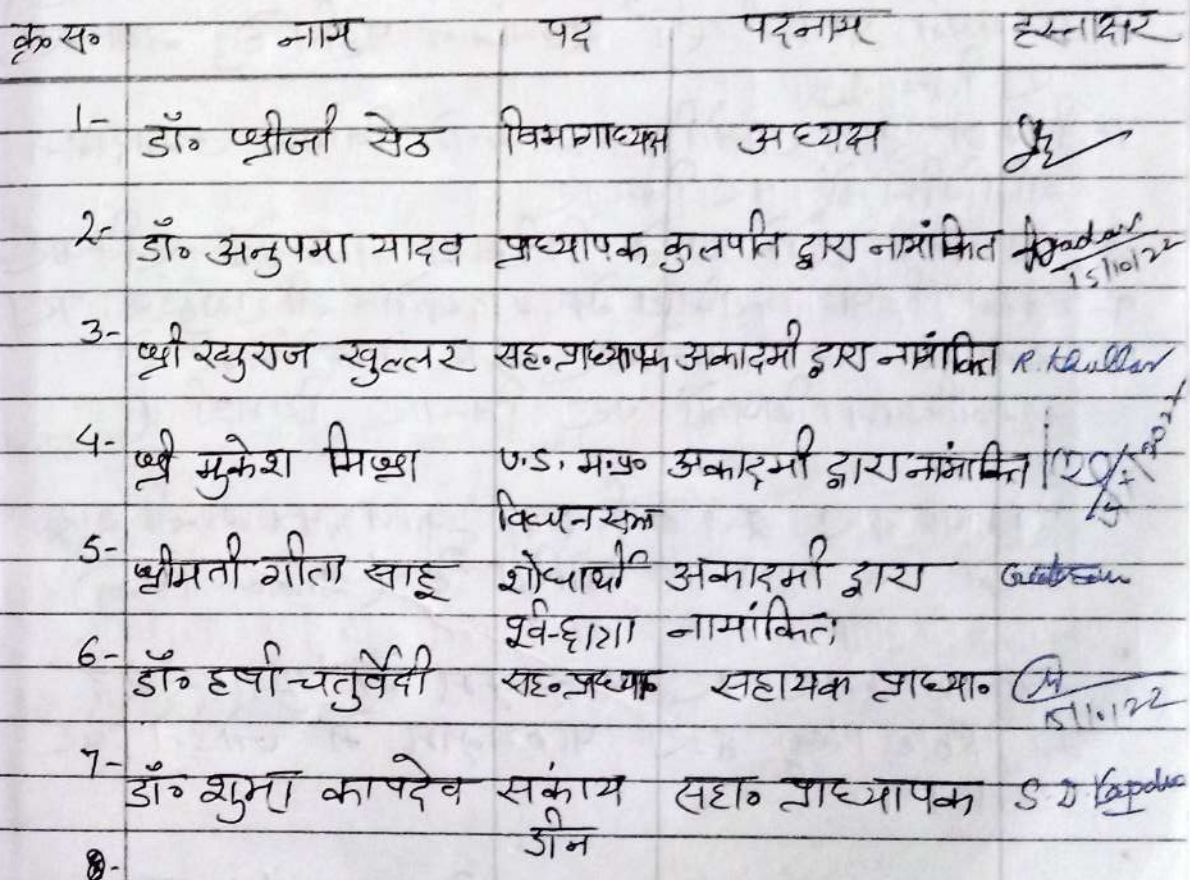 क्र० स० नाम पद पदनाम हस्ताक्षर
1- डॉ० श्रीजी सेठ विभागाध्यक्ष अध्यक्ष
2- डॉ० अनुपमा यादव प्राध्यापक कुलपति द्वारा नामांकित Ayadav
15/10/22
3- श्री रघुराज खुल्लर सह० प्राध्यापक अकादमी द्वारा नामांकित R. Khullar
4- श्री मुकेश मिश्रा म०प्र० अकादमी द्वारा नामांकित
5- श्रीमती गीता साहू शोधार्थी अकादमी द्वारा
पूर्व-छात्रा नामांकित
6- डॉ० हर्षा चतुर्वेदी सह० प्राध्या० सहायक प्राध्या०
15/10/22
7- डॉ० शुभा कापदेव संकाय सहा० प्राध्यापक
डीन
8-